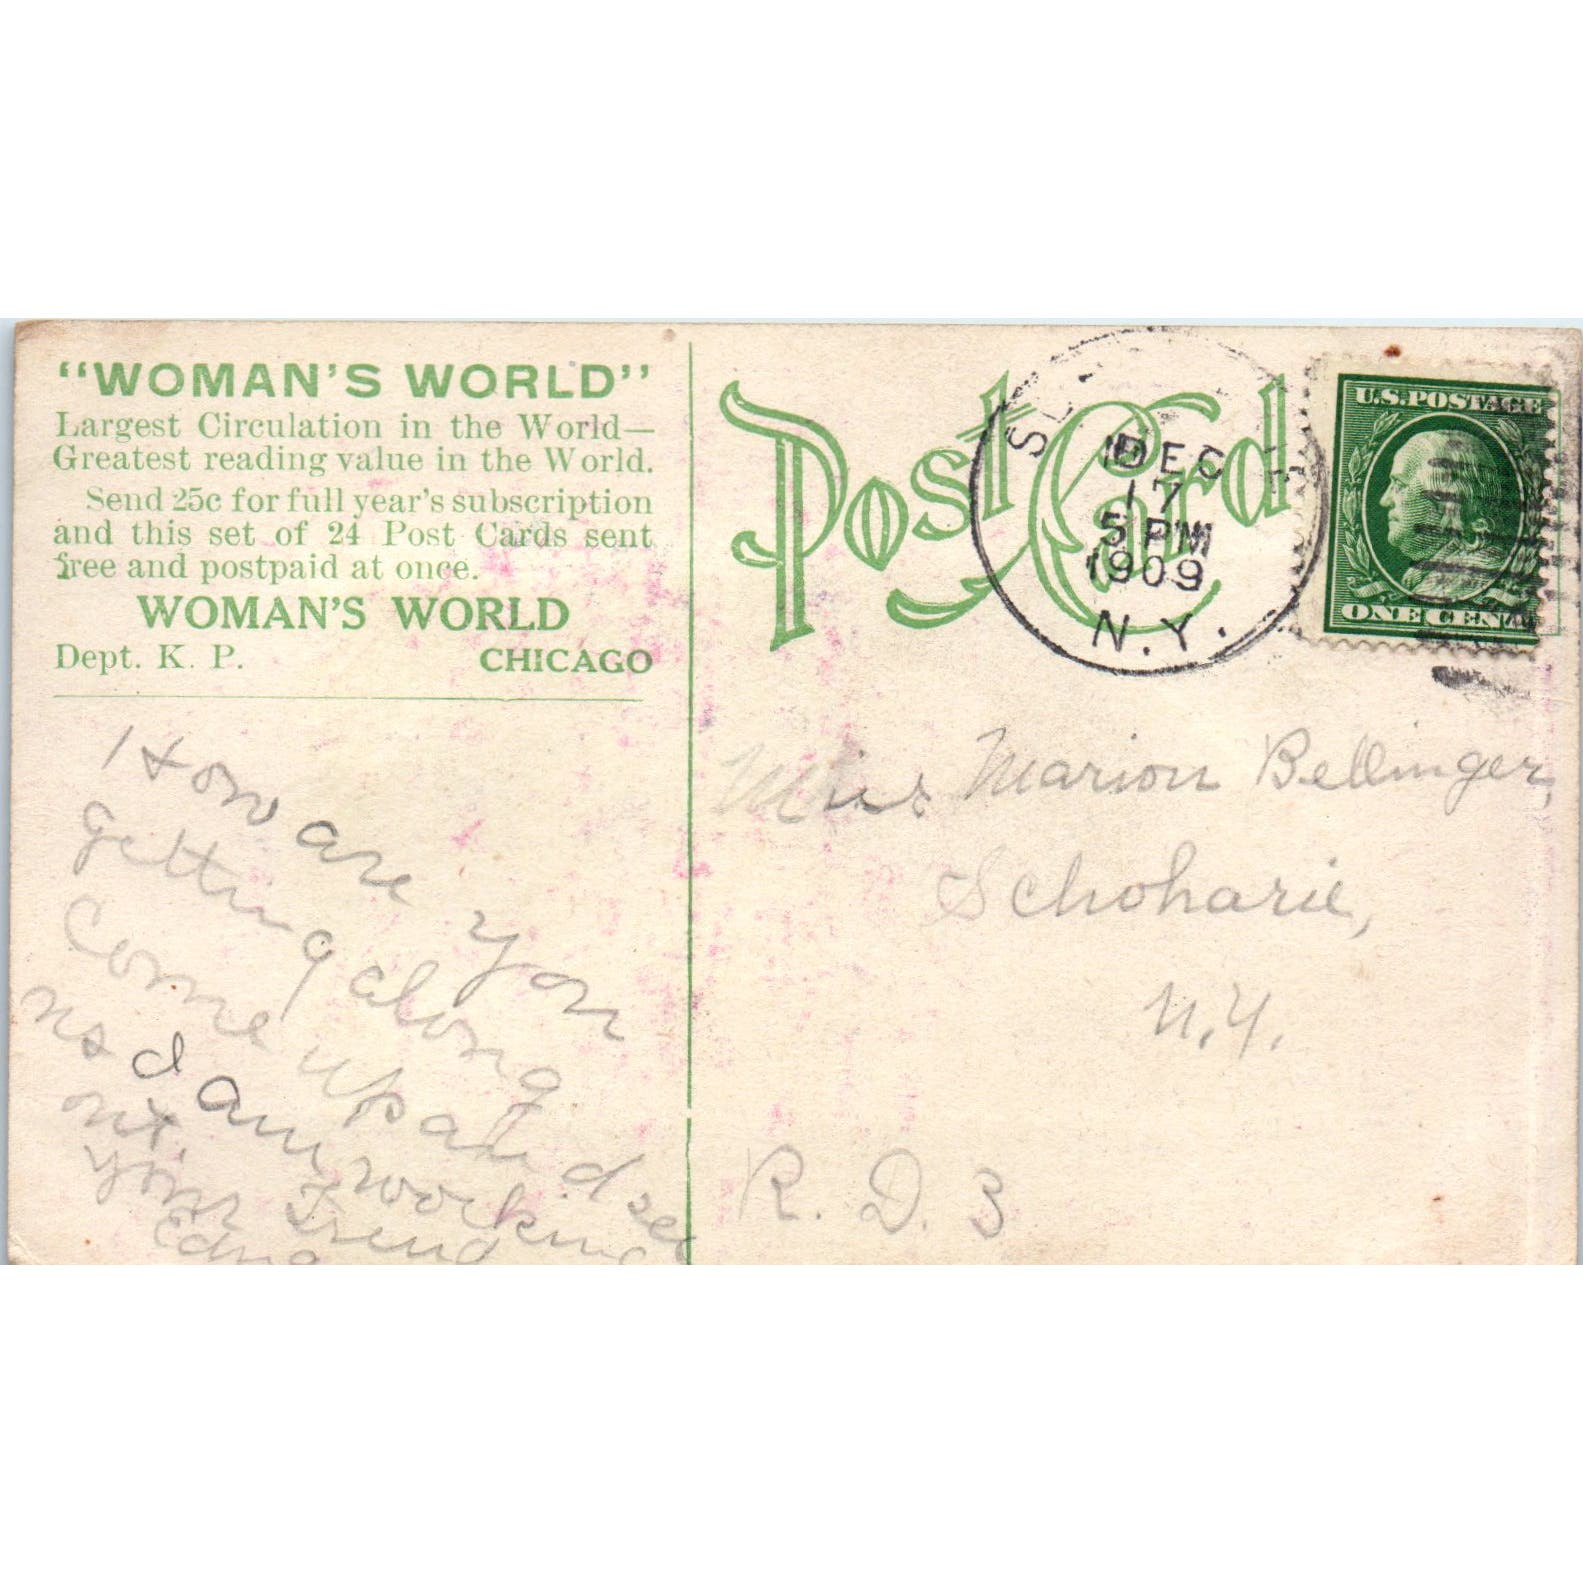 "WOMAN'S WORLD"
Largest Circulation in the World—
Greatest reading value in the World.
Send 25c for full year's subscription
and this set of 24 Post Cards sent
free and postpaid at once.
WOMAN'S WORLD
Dept. K. P. CHICAGO
How are you
getting along
Come up and see
us I am working
out.
your Friend
Edna
Post Card
DEC
17
5 PM
1909
N.Y.
U.S. POSTAGE
ONE CENT
Miss Marion Bellinger,
Schoharie,
N.Y.
R. D. 3